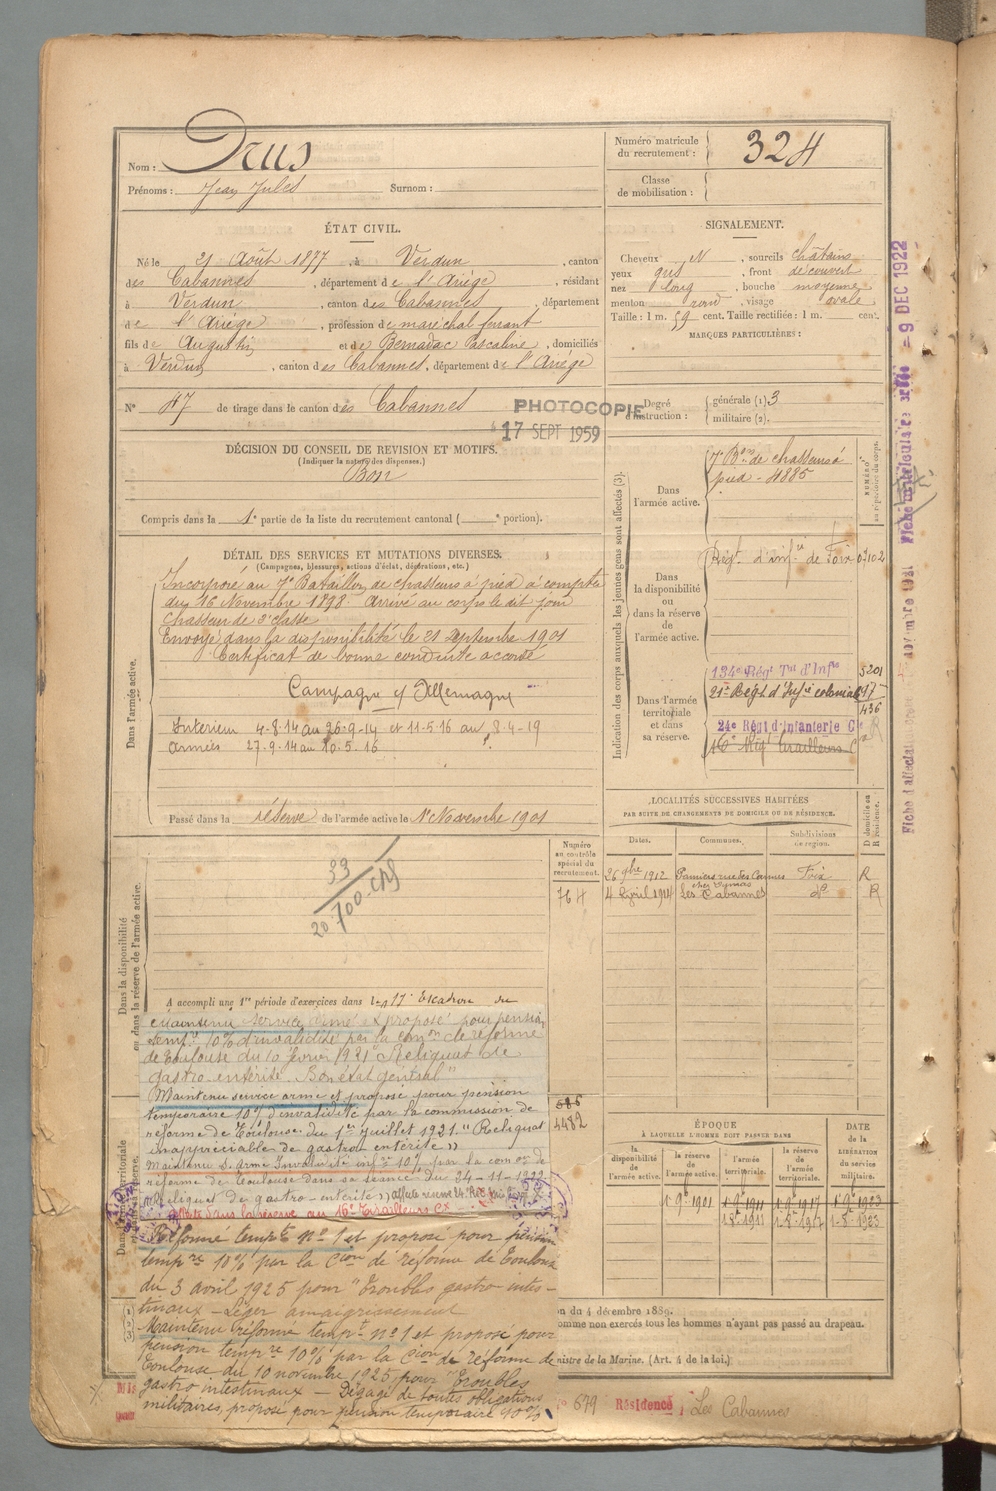 Nom : Drus
Prénoms : Jean Jules Surnom :
Numéro matricule du recrutement : 324
Classe de mobilisation :
ÉTAT CIVIL.
Né le 21 Août 1877, à Verdun, canton
des Cabannes, département de l'Ariège, résidant
à Verdun, canton des Cabannes, département
de l'Ariège, profession de maréchal ferrant
fils de Augustin et de Bernadac Pascaline, domiciliés
à Verdun, canton des Cabannes, département de l'Ariège
N° 47 de tirage dans le canton des Cabannes
PHOTOCOPIE
17 SEPT 1959
SIGNALEMENT.
Cheveux N, sourcils châtains
yeux gris, front découvert
nez long, bouche moyenne
menton rond, visage ovale
Taille : 1 m. 59 cent. Taille rectifiée : 1 m. cent.
MARQUES PARTICULIÈRES :
Degré d'instruction : générale (1) 3
militaire (2).
DÉCISION DU CONSEIL DE REVISION ET MOTIFS.
(Indiquer la nature des dispenses.)
Bon
Compris dans la 1e partie de la liste du recrutement cantonal ( e portion).
DÉTAIL DES SERVICES ET MUTATIONS DIVERSES.
(Campagnes, blessures, actions d'éclat, décorations, etc.)
Dans l'armée active.
Incorporé au 7e Bataillon de chasseurs à pied à compter
du 16 Novembre 1898. Arrivé au corps le dit jour
Chasseur de 2e classe
Envoyé dans la disponibilité le 21 Septembre 1901
Certificat de bonne conduite accordé
Campagne c/ Allemagne
Intérieur 4-8-14 au 26-9-14 et 11-5-16 au 8-4-19
Armées 27-9-14 au 10-5-16
Passé dans la réserve de l'armée active le 1er Novembre 1901
Indication des corps auxquels les jeunes gens sont affectés (3).
NUMÉRO au répertoire du corps.
Dans l'armée active.
7e Bon de chasseurs à
pied - 4885
Dans la disponibilité ou dans la réserve de l'armée active.
Régt d'infie de Foix 07102
Dans l'armée territoriale et dans sa réserve.
134e Régt Tal d'Infie 5201
21e Régt d'Infie coloniale
436
24e Régt d'Infanterie Cle
16e Régt Tirailleurs C
LOCALITÉS SUCCESSIVES HABITÉES
PAR SUITE DE CHANGEMENTS DE DOMICILE OU DE RÉSIDENCE.
Dates. Communes. Subdivisions de région. D domicile ou R résidence.
26 9bre 1912 Pamiers rue des Carmes Foix R
4 Avril 1914 Les Cabannes do R
Dans la disponibilité ou dans la réserve de l'armée active.
Numéro au contrôle spécial du recrutement.
764
33
20.700 chg
A accompli une 1re période d'exercices dans le 17e Escadron du
Maintenu service armé et proposé pour pension
tempre 10% d'invalidité par la comon de réforme
de Toulouse du 10 février 1921 Reliquat de
gastro entérite. Bon état général"
Maintenu service armé et proposé pour pension
temporaire 10% d'invalidité par la commission de
réforme de Toulouse du 1er Juillet 1921. "Reliquat
inappréciable de gastro entérite"
Maintenu S. Armé Invalidité infre 10% par la comon de
réforme de Toulouse dans sa séance du 24-11-1922
"Reliquat de gastro-entérite"
Affecté dans la réserve au 16e Tirailleurs Cx
Réformé tempre n° 1 et proposé pour pension
tempre 10% par la Cion de réforme de Toulouse
du 3 avril 1925 pour "Troubles gastro-intes-
tinaux - Léger amaigrissement
Maintenu réformé tempre n° 1 et proposé pour
pension tempre 10% par la Cion de réforme de
Toulouse du 10 novembre 1925 pour "Troubles
gastro intestinaux - Dégagé de toutes obligations
militaires, proposé pour pension temporaire 10%
686
4482
ÉPOQUE
À LAQUELLE L'HOMME DOIT PASSER DANS
DATE de la LIBÉRATION du service militaire.
la disponibilité de l'armée active. la réserve de l'armée active. l'armée territoriale. la réserve de l'armée territoriale.
1 9bre 1901 1 9bre 1911 1 9bre 1917 1 9bre 1923
1-8bre 1911 1-8-1917 1-8-1923
on du 4 décembre 1889.
omme non exercés tous les hommes n'ayant pas passé au drapeau.
nistre de la Marine. (Art. 4 de la loi.)
n° 679 Résidence Les Cabannes
9 DEC 1922